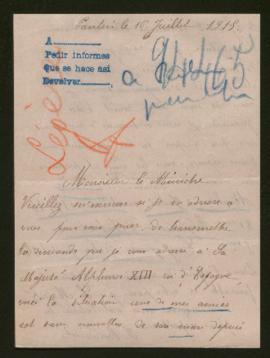 Pantin le 16 Juillet 1918.
A
Pedir informes
Que se hace así
Devolver
a
Monsieur le Ministre
Veuillez m'excuser si je m'adresse à
vous pour vous prier de transmettre
la demande que je vous adresse à Sa
Majesté Alphonse XIII roi d'Espagne
voici la situation une de mes amies
est sans nouvelles de son mari depuis